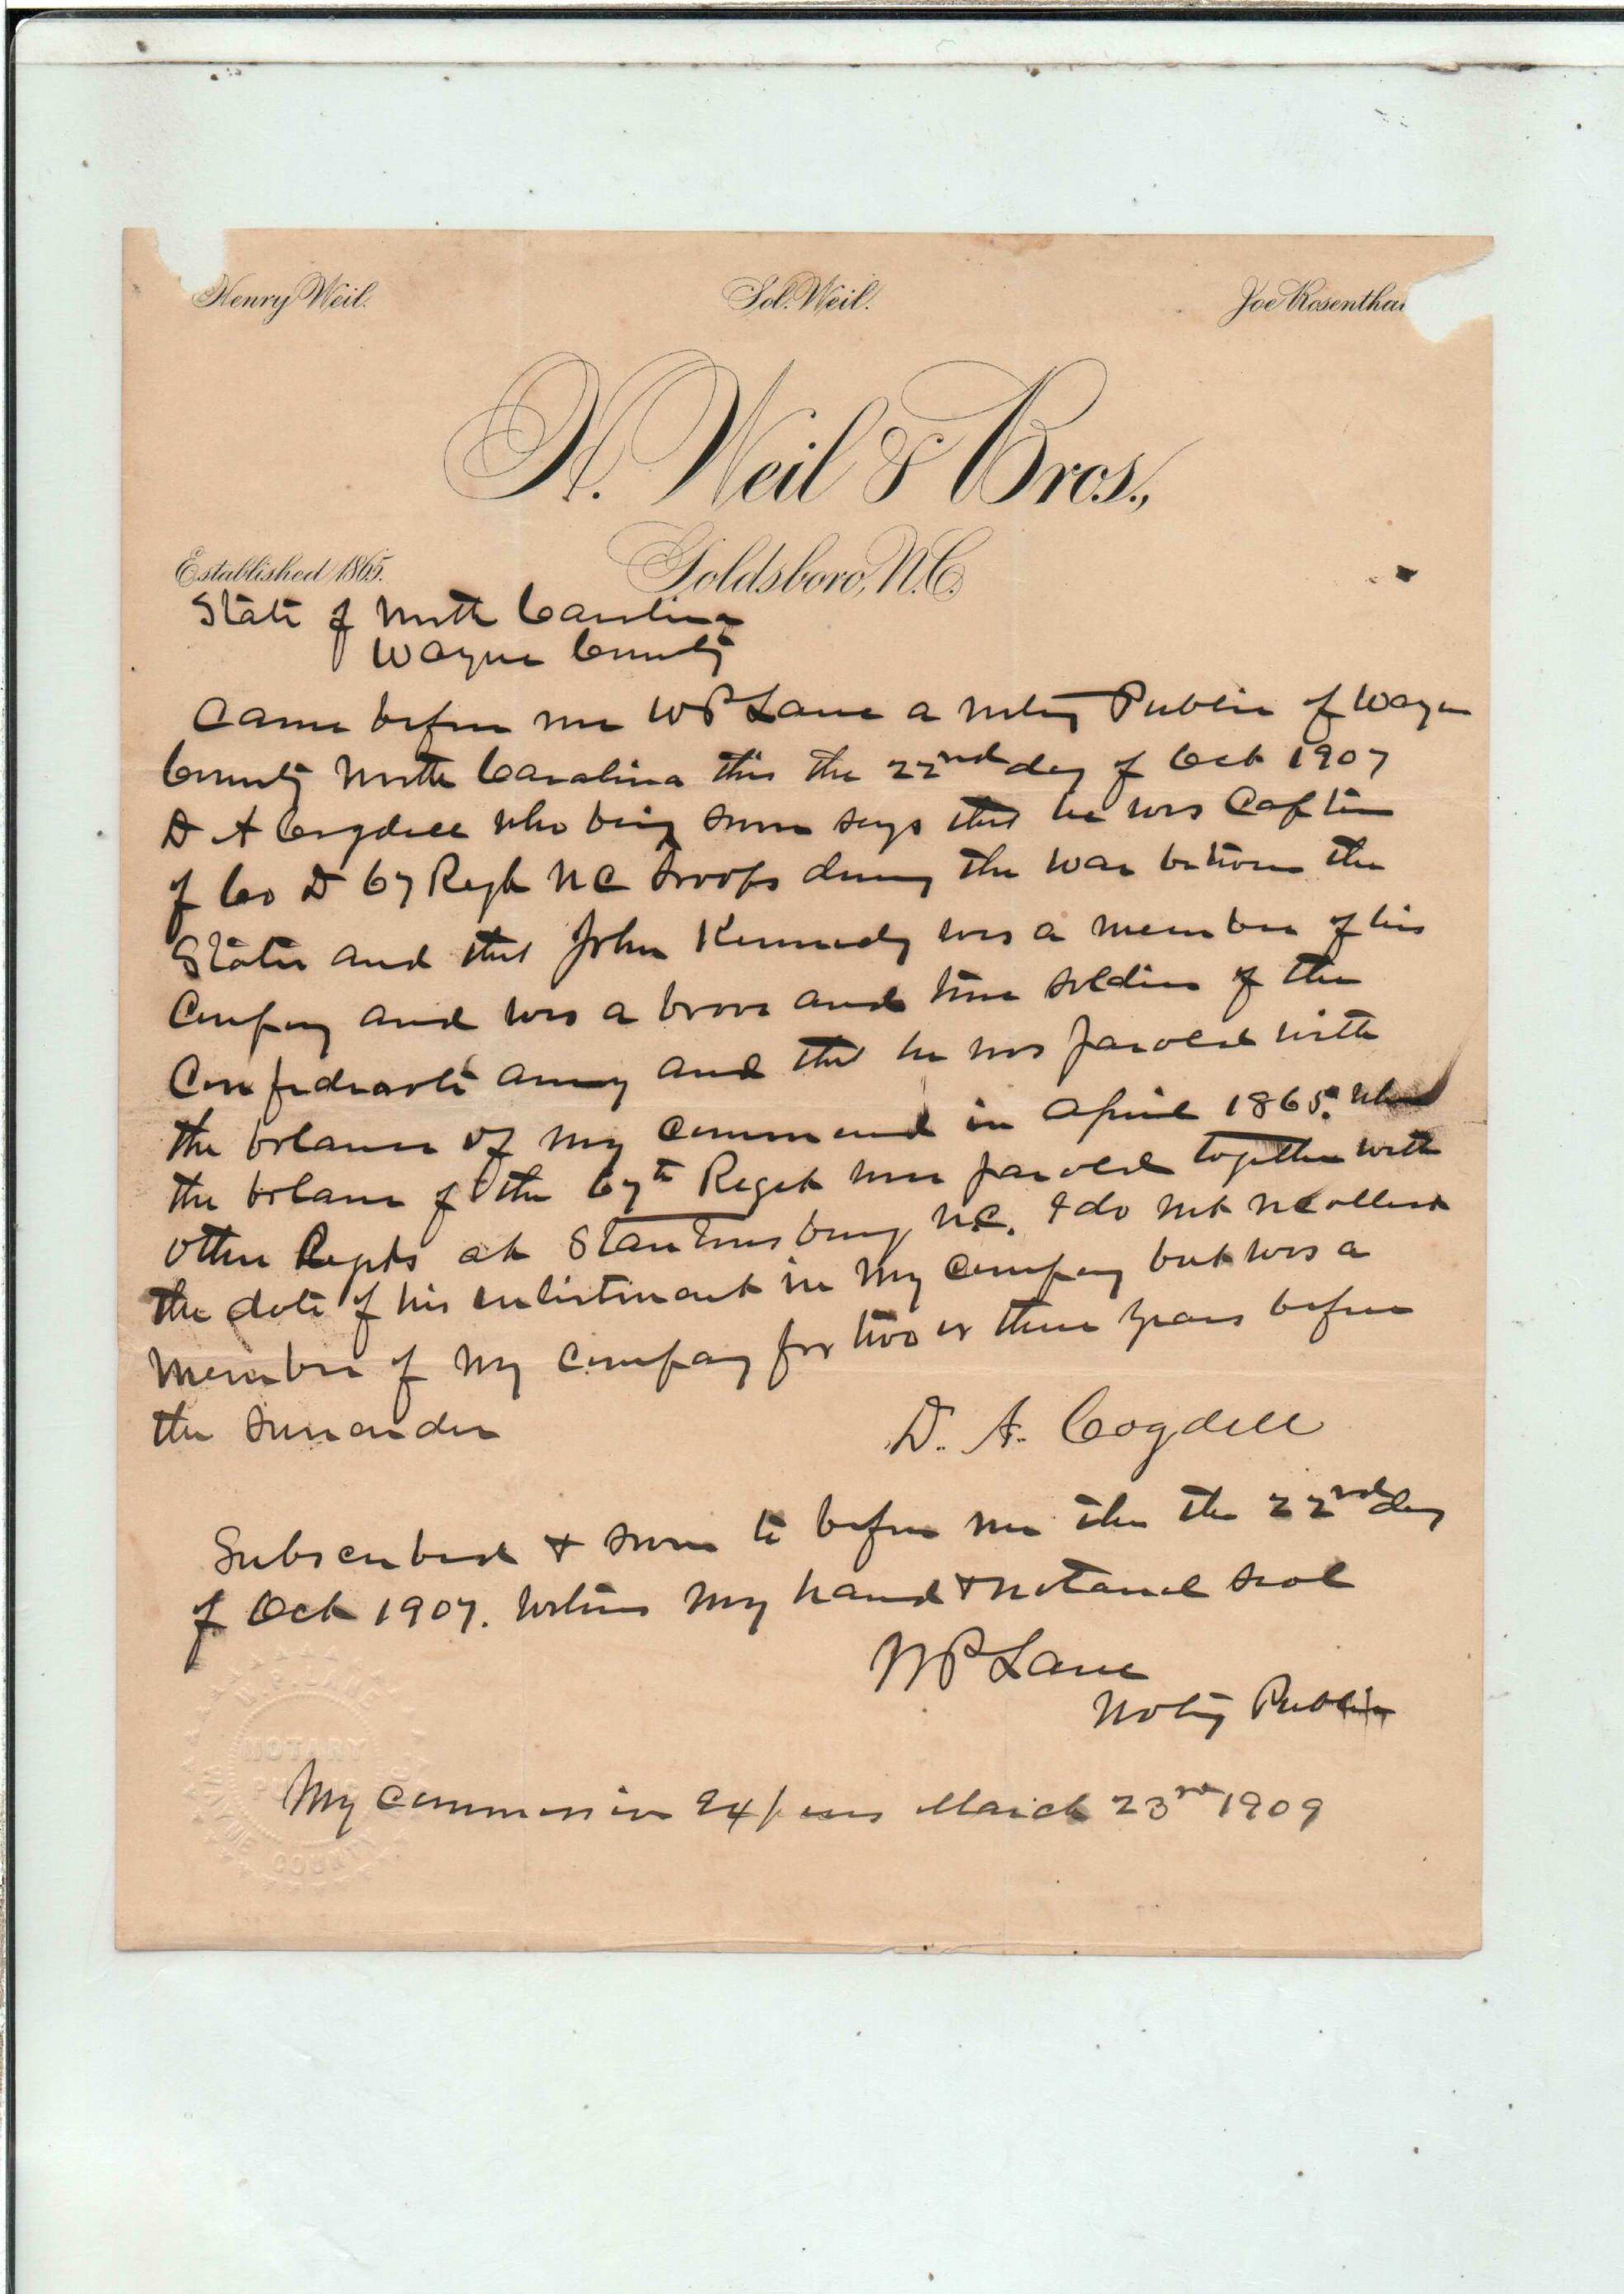 Henry Weil. Sol. Weil. Joe Rosenthal
H. Weil & Bros.,
Established 1865. Goldsboro, N.C.
State of North Carolina
Wayne County
Came before me W P Lane a notary Public of Wayne
County North Carolina this the 22nd day of Oct 1907
D A Cogdell who being sworn says that he was Captain
of Co D 67 Regt N C Troops during the War between the
States and that John Kennedy was a member of his
Company and was a brave and true soldier of the
Confederate army and that he was paroled with
the balance of my command in April 1865. when
the balance of the 67th Regt were paroled together with
other Regts at Stantonsburg N.C. I do not recollect
the date of his enlistment in my company but was a
member of my company for two or three years before
the surrender
D. A. Cogdell
Subscribed & sworn to before me this the 22nd day
of Oct 1907. Witness my hand & notarial seal
W P Lane
Notary Public
W. P. LANE
NOTARY
PUBLIC
WAYNE COUNTY
My commission Expires March 23rd 1909